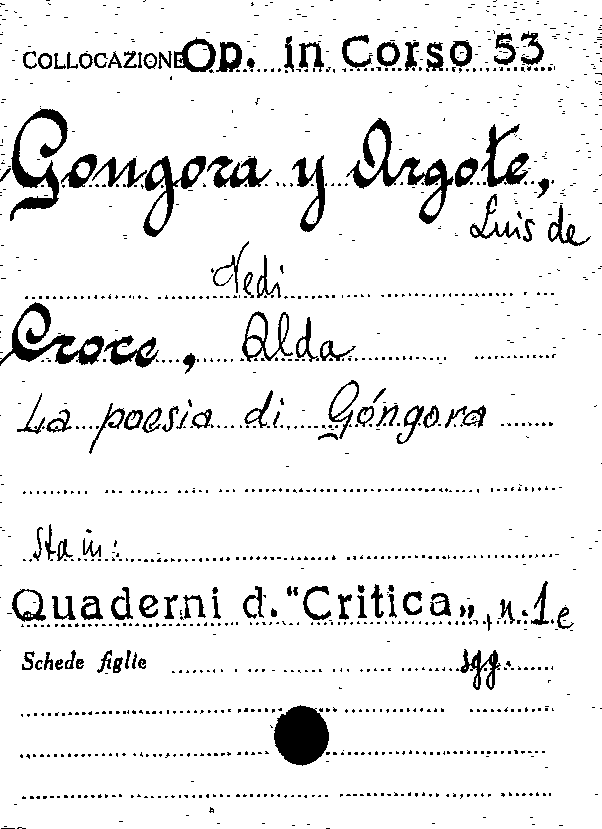 COLLOCAZIONE Op. in Corso 53
Gongora y Argote,
Luis de
Vedi
Croce, Alda
La poesia di Góngora
Sta in:
Quaderni d. "Critica„, n. 1 e
Schede figlie sgg.